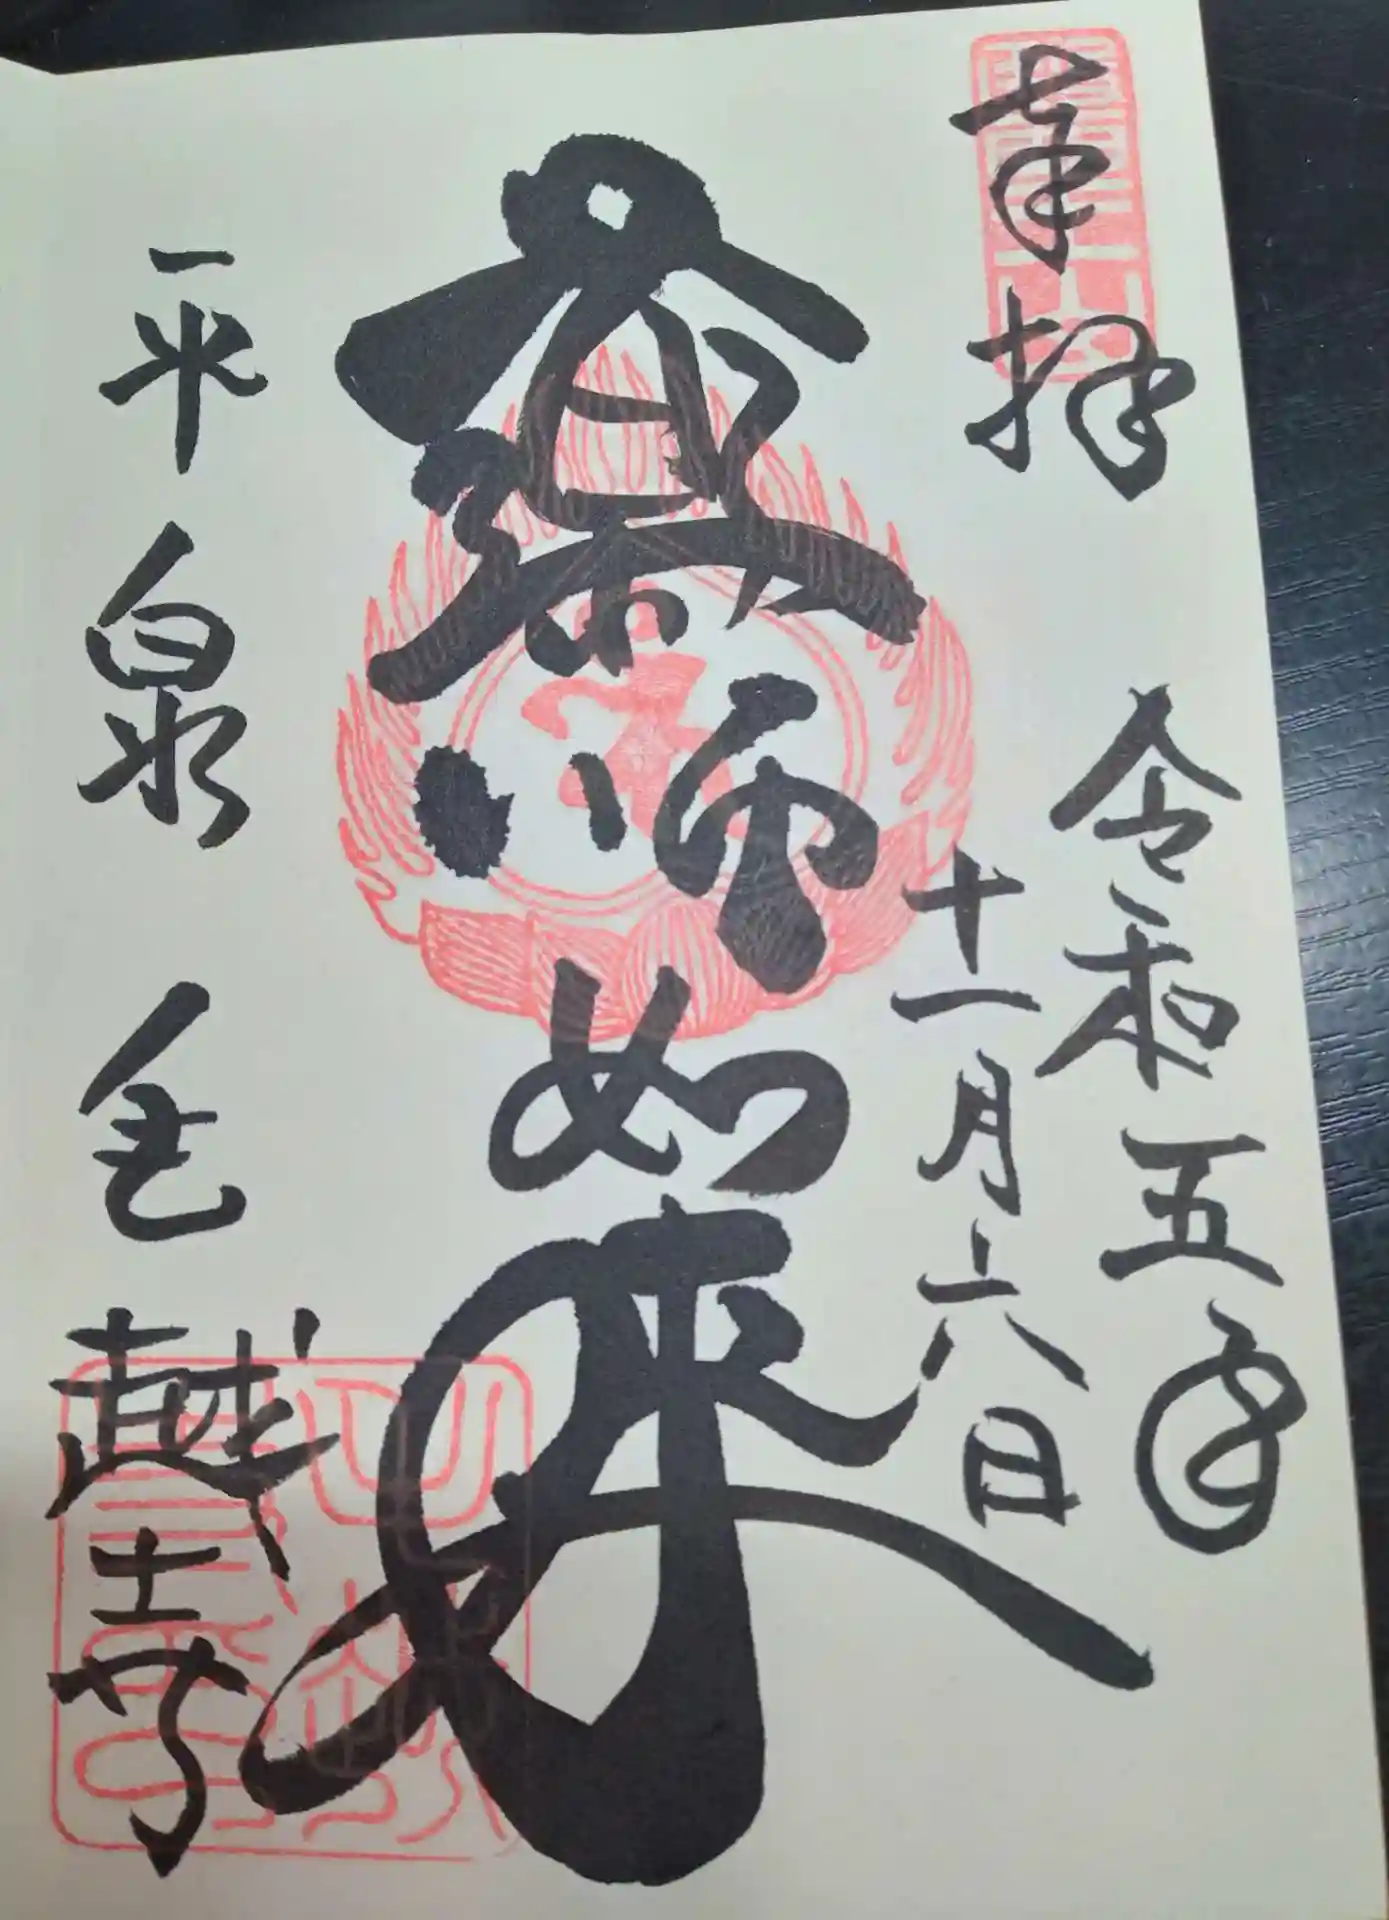 奉拝
令和五年
十一月六日
薬師如来
平泉 毛越寺